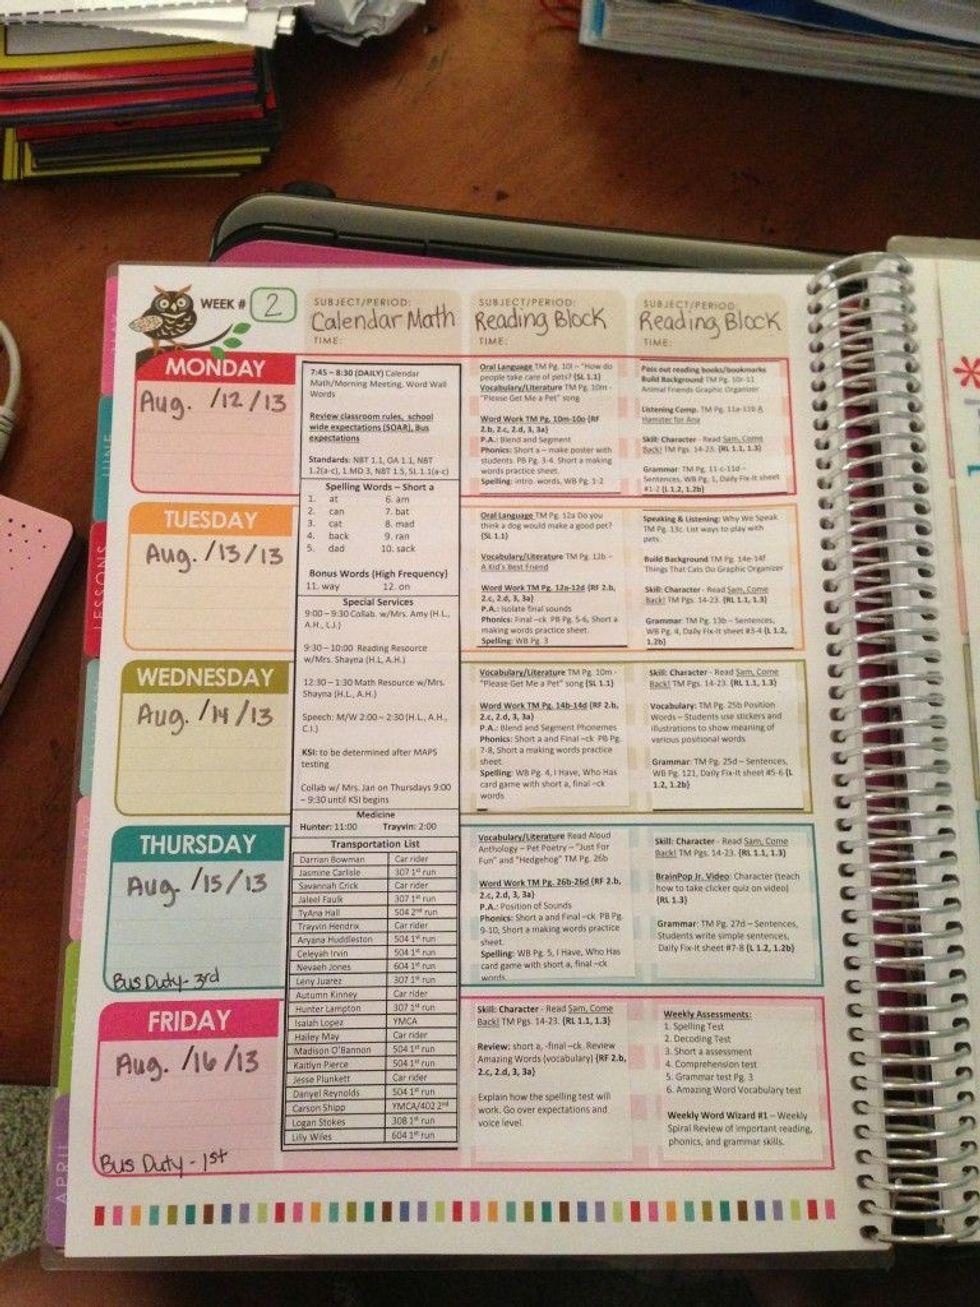 WEEK # 2
SUBJECT/PERIOD:
Calendar Math
TIME:
SUBJECT/PERIOD:
Reading Block
TIME:
SUBJECT/PERIOD:
Reading Block
TIME:
MONDAY
Aug. /12/13
7:45 – 8:30 (DAILY) Calendar
Math/Morning Meeting, Word Wall
Words
Review classroom rules, school
wide expectations (SOAR), Bus
expectations
Standards: NBT 1.1, OA 1.1, NBT
1.2(a-c), 1.MD 3, NBT 1.5, SL 1.1(a-c)
Spelling Words – Short a
1. at 6. am
2. can 7. bat
3. cat 8. mad
4. back 9. ran
5. dad 10. sack
Bonus Words (High Frequency)
11. way 12. on
Special Services
9:00 – 9:30 Collab. w/Mrs. Amy (H.L.,
A.H., L.J.)
9:30 – 10:00 Reading Resource
w/Mrs. Shayna (H.L, A.H.)
12:30 – 1:30 Math Resource w/Mrs.
Shayna (H.L., A.H.)
Speech: M/W 2:00 – 2:30 (H.L., A.H.,
C.J.)
KSI: to be determined after MAPS
testing
Collab w/ Mrs. Jan on Thursdays 9:00
– 9:30 until KSI begins
Medicine
Hunter: 11:00 Trayvin: 2:00
Transportation List
Darrian Bowman Car rider
Jasmine Carlisle 307 1st run
Savannah Crick Car rider
Jaleel Faulk 307 1st run
TyAna Hall 504 2nd run
Trayvin Hendrix Car rider
Aryana Huddleston 504 1st run
Celeyah Irvin 504 1st run
Nevaeh Jones 604 1st run
Leny Juarez 307 1st run
Autumn Kinney Car rider
Hunter Lampton 307 1st run
Isaiah Lopez YMCA
Hailey May Car rider
Madison O'Bannon 504 1st run
Kaitlyn Pierce 504 1st run
Jesse Plunkett Car rider
Danyel Reynolds 504 1st run
Carson Shipp YMCA/402 2nd
Logan Stokes 308 1st run
Lilly Wiles 604 1st run
Oral Language TM Pg. 10l – "How do
people take care of pets? (SL 1.1)
Vocabulary/Literature TM Pg. 10m -
"Please Get Me a Pet" song
Word Work TM Pg. 10m-10o (RF
2.b, 2.c, 2.d, 3, 3a)
P.A.: Blend and Segment
Phonics: Short a – make poster with
students. PB Pg. 3-4. Short a making
words practice sheet.
Spelling: intro. words, WB Pg. 1-2
Pass out reading books/bookmarks
Build Background TM Pg. 10r-11
Animal Friends Graphic Organizer
Listening Comp. TM Pg. 11a-11b A
Hamster for Ana
Skill: Character - Read Sam, Come
Back! TM Pgs. 14-23. (RL 1.1, 1.3)
Grammar: TM Pg. 11-c-11d –
Sentences, WB Pg. 1, Daily Fix-It sheet
#1-2 (L 1.2, 1.2b)
TUESDAY
Aug. /13/13
Oral Language TM Pg. 12a Do you
think a dog would make a good pet?
(SL 1.1)
Vocabulary/Literature TM Pg. 12b –
A Kid's Best Friend
Word Work TM Pg. 12a-12d (RF 2.b,
2.c, 2.d, 3, 3a)
P.A.: Isolate final sounds
Phonics: Final –ck PB Pg. 5-6, Short a
making words practice sheet.
Spelling: WB Pg. 3
Speaking & Listening: Why We Speak
TM Pg. 13c. List ways to play with
pets.
Build Background TM Pg. 14e-14f
Things That Cats Do Graphic Organizer
Skill: Character - Read Sam, Come
Back! TM Pgs. 14-23. (RL 1.1, 1.3)
Grammar: TM Pg. 13b – Sentences,
WB Pg. 4, Daily Fix-It sheet #3-4 (L 1.2,
1.2b)
WEDNESDAY
Aug. /14/13
Vocabulary/Literature TM Pg. 10m -
"Please Get Me a Pet" song (SL 1.1)
Word Work TM Pg. 14b-14d (RF 2.b,
2.c, 2.d, 3, 3a)
P.A.: Blend and Segment Phonemes
Phonics: Short a and Final –ck PB Pg.
7-8, Short a making words practice
sheet.
Spelling: WB Pg. 4, I Have, Who Has
card game with short a, final –ck
words
Skill: Character - Read Sam, Come
Back! TM Pgs. 14-23. (RL 1.1, 1.3)
Vocabulary: TM Pg. 25b Position
Words – Students use stickers and
illustrations to show meaning of
various positional words
Grammar: TM Pg. 25d – Sentences,
WB Pg. 121, Daily Fix-It sheet #5-6 (L
1.2, 1.2b)
THURSDAY
Aug. /15/13
Bus Duty - 3rd
Vocabulary/Literature Read Aloud
Anthology – Pet Poetry – "Just For
Fun" and "Hedgehog" TM Pg. 26b
Word Work TM Pg. 26b-26d (RF 2.b,
2.c, 2.d, 3, 3a)
P.A.: Position of Sounds
Phonics: Short a and Final –ck PB Pg.
9-10, Short a making words practice
sheet.
Spelling: WB Pg. 5, I Have, Who Has
card game with short a, final –ck
words
Skill: Character - Read Sam, Come
Back! TM Pgs. 14-23. (RL 1.1, 1.3)
BrainPop Jr. Video: Character (teach
how to take clicker quiz on video)
(RL 1.3)
Grammar: TM Pg. 27d – Sentences,
Students write simple sentences,
Daily Fix-It sheet #7-8 (L 1.2, 1.2b)
FRIDAY
Aug. /16/13
Bus Duty - 1st
Skill: Character - Read Sam, Come
Back! TM Pgs. 14-23. (RL 1.1, 1.3)
Review: short a, -final –ck. Review
Amazing Words (vocabulary) (RF 2.b,
2.c, 2.d, 3, 3a)
Explain how the spelling test will
work. Go over expectations and
voice level.
Weekly Assessments:
1. Spelling Test
2. Decoding Test
3. Short a assessment
4. Comprehension test
5. Grammar test Pg. 3
6. Amazing Word Vocabulary test
Weekly Word Wizard #1 – Weekly
Spiral Review of important reading,
phonics, and grammar skills.
JUNE
LESSONS
APRIL